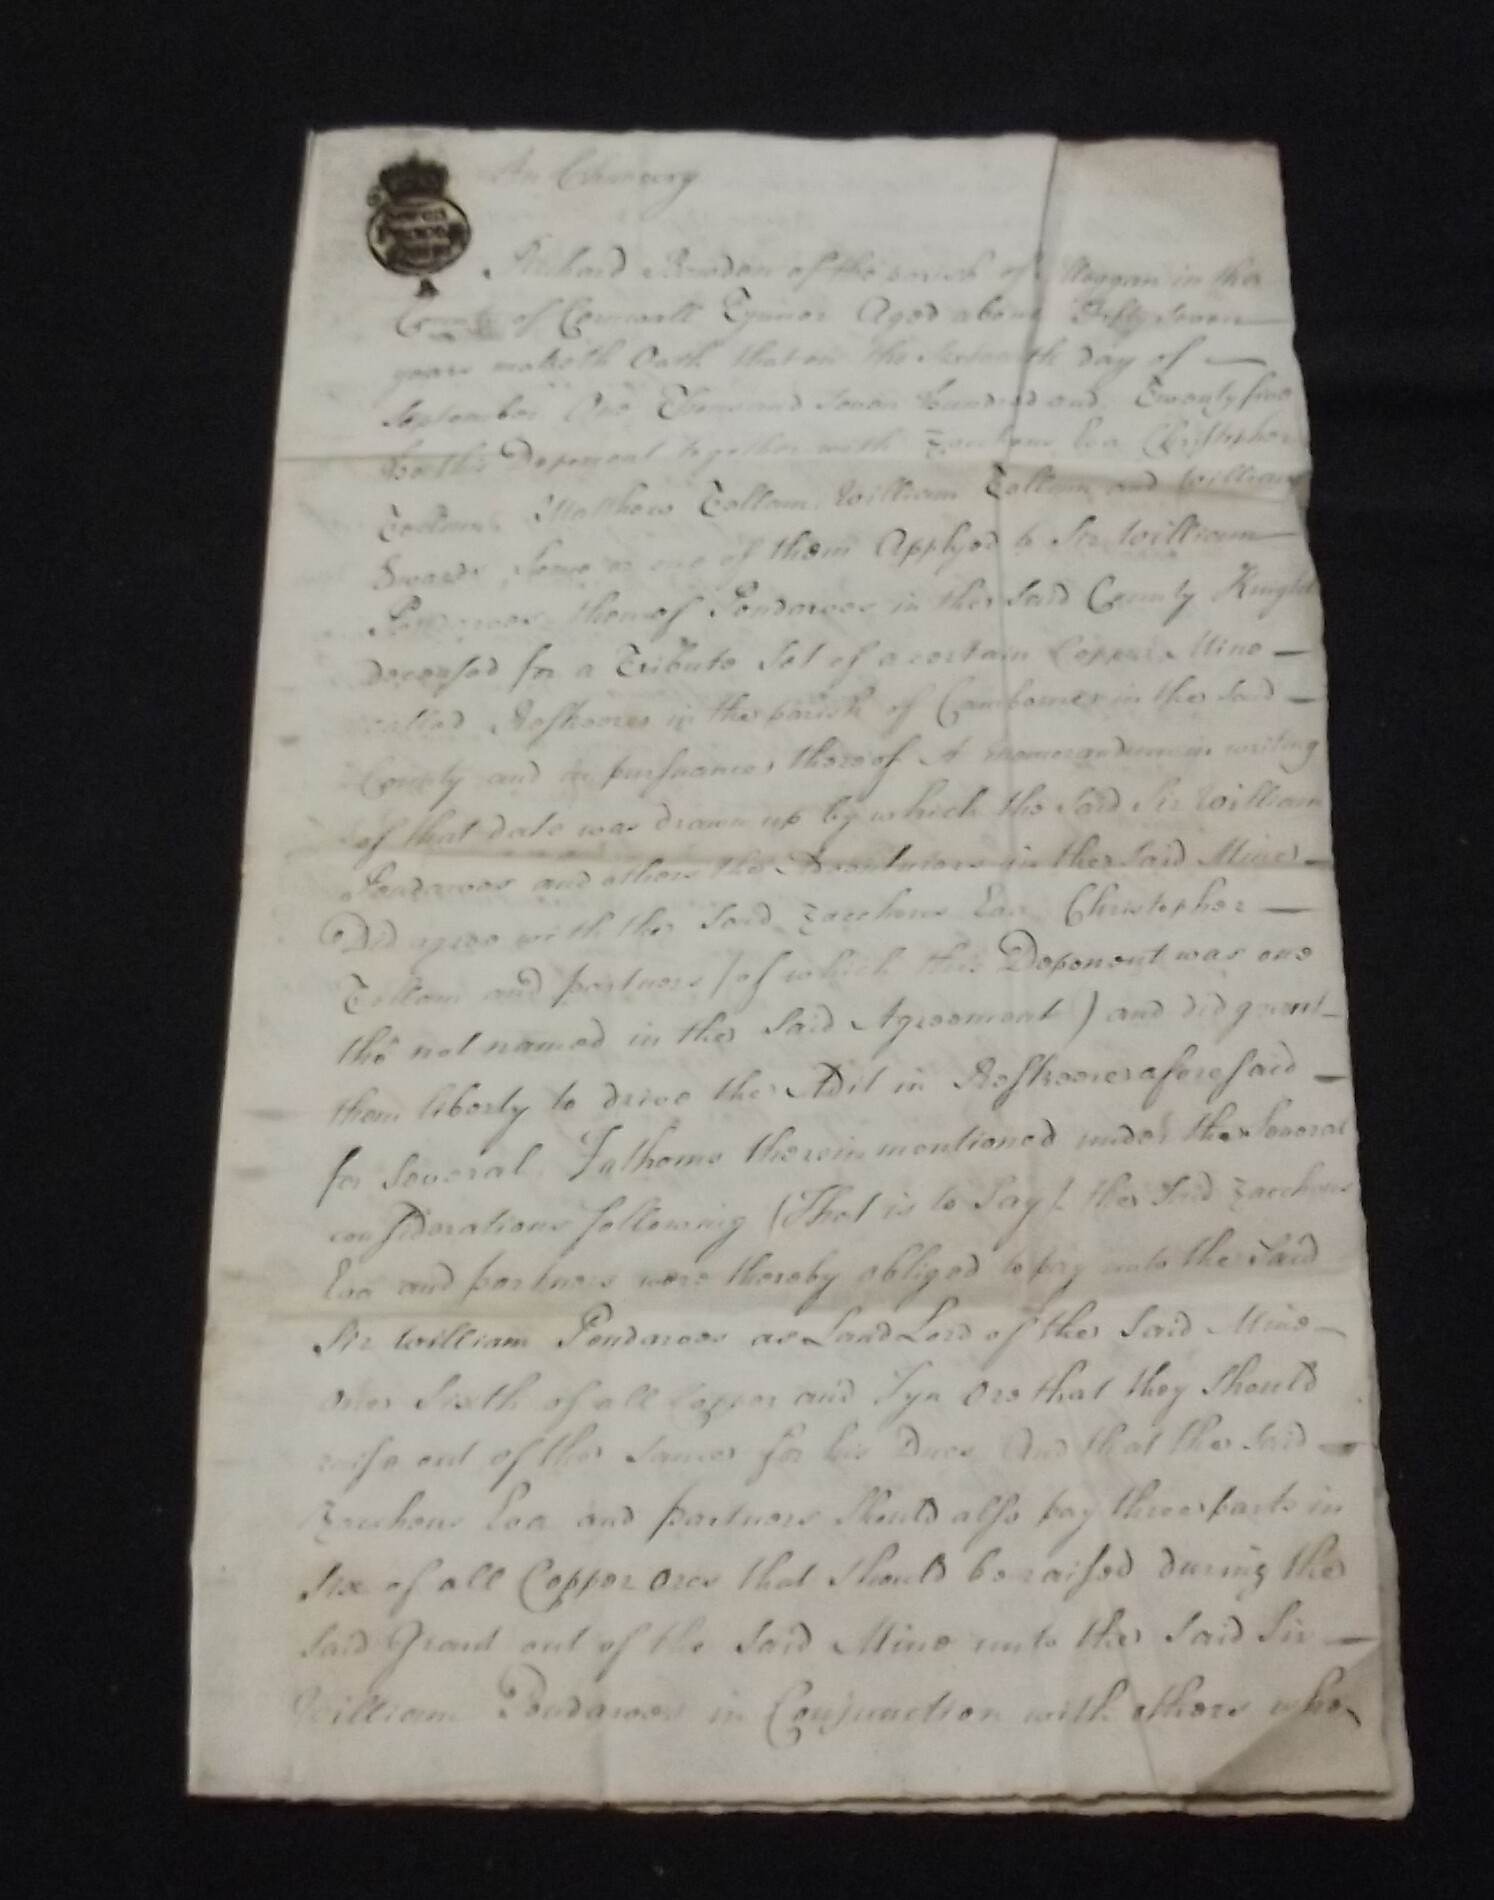 In Chancery
Richard Bowden of the parish of Illoggan in the
County of Cornwall Tynner Aged about Fifty Seven
years maketh Oath that on the day of
September One Thousand Seven Hundred and Twenty five
he this Deponent together with Zacheus Eva Christopher
Matthew Tollam William Tollam and William
Some or one of them Applyed to Sir William
Pendarves then of Pendarves in the said County Knight
deceased for a Tribute Set of a certain Copper Mine
called Roskeere in the parish of Camborne in the said
County and in pursuance thereof A memorandum in writing
of that date was drawn up by which the said Sir William
Pendarves and others the Adventurers in the said Mine
Did agree with the said Zacheus Eva Christopher
Tollam and partners (of which this Deponent was one
tho' not named in the said Agreement) and did grant
them liberty to drive the Adit in Roskeere aforesaid
for several Fathoms therein mentioned under the Several
considerations following (That is to Say) the said Zacheus
Eva and partners were thereby obliged to pay unto the said
Sir William Pendarves as Land Lord of the said Mine
One Sixth of all Copper and Tyn Ore that they should
raise out of the same for his Dues And that the said
Zacheus Eva and partners should also pay three parts in
Six of all Copper Ores that should be raised during the
said Grant out of the said Mine unto the said Sir
William Pendarves in Conjunction with others who